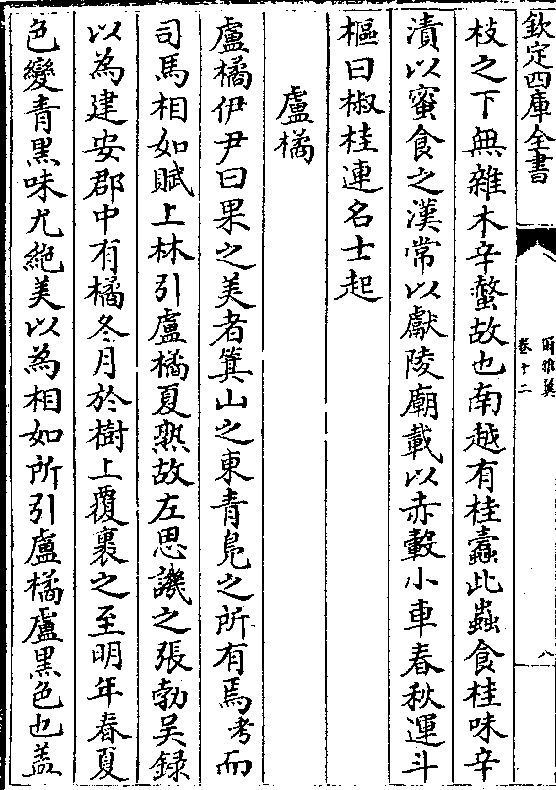 欽定四庫全書
爾雅翼
卷十二
八
枝之下無雜木辛螫故也南越有桂蠧此蟲食桂味辛
漬以蜜食之漢常以獻陵廟載以赤轂小車春秋運斗
樞曰椒桂連名士起
盧橘
盧橘伊尹曰果之美者箕山之東青鳬之所有焉考而
司馬相如賦上林引盧橘夏熟故左思譏之張勃吳録
以為建安郡中有橘冬月於樹上覆裹之至明年春夏
色變青黒味尤絶美以為相如所引盧橘盧黒色也盖